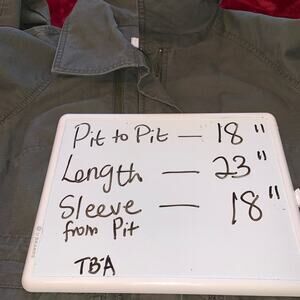 Pit to Pit — 18"
Length — 23"
Sleeve — 18"
from Pit
TBA